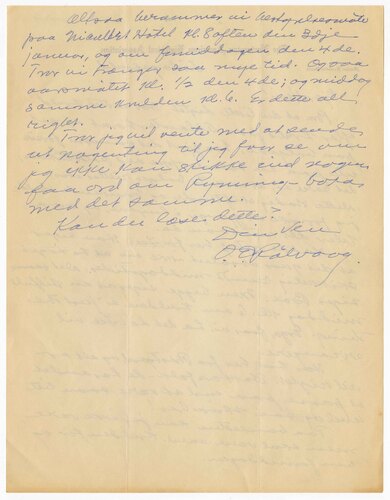 Altsaa berammer vi bestyrelsesmøte
paa Nicollet Hotel Kl. 8 aften den 3dje
januar, og om formiddagen den 4de.
Tror vi trænger saa mye tid. Ogsaa
aarsmøtet Kl. 1/2 den 4de; og middag
samme kvelden Kl. 6. Er dette all
right?
Tror jeg vil vente med at sende
ut nogenting til jeg faar se om
jeg ikke kan stikke ind nogen
faa ord om Rynning-boka
med det samme.
Kan du læse dette?
Din ven
O. E. Rølvaag.